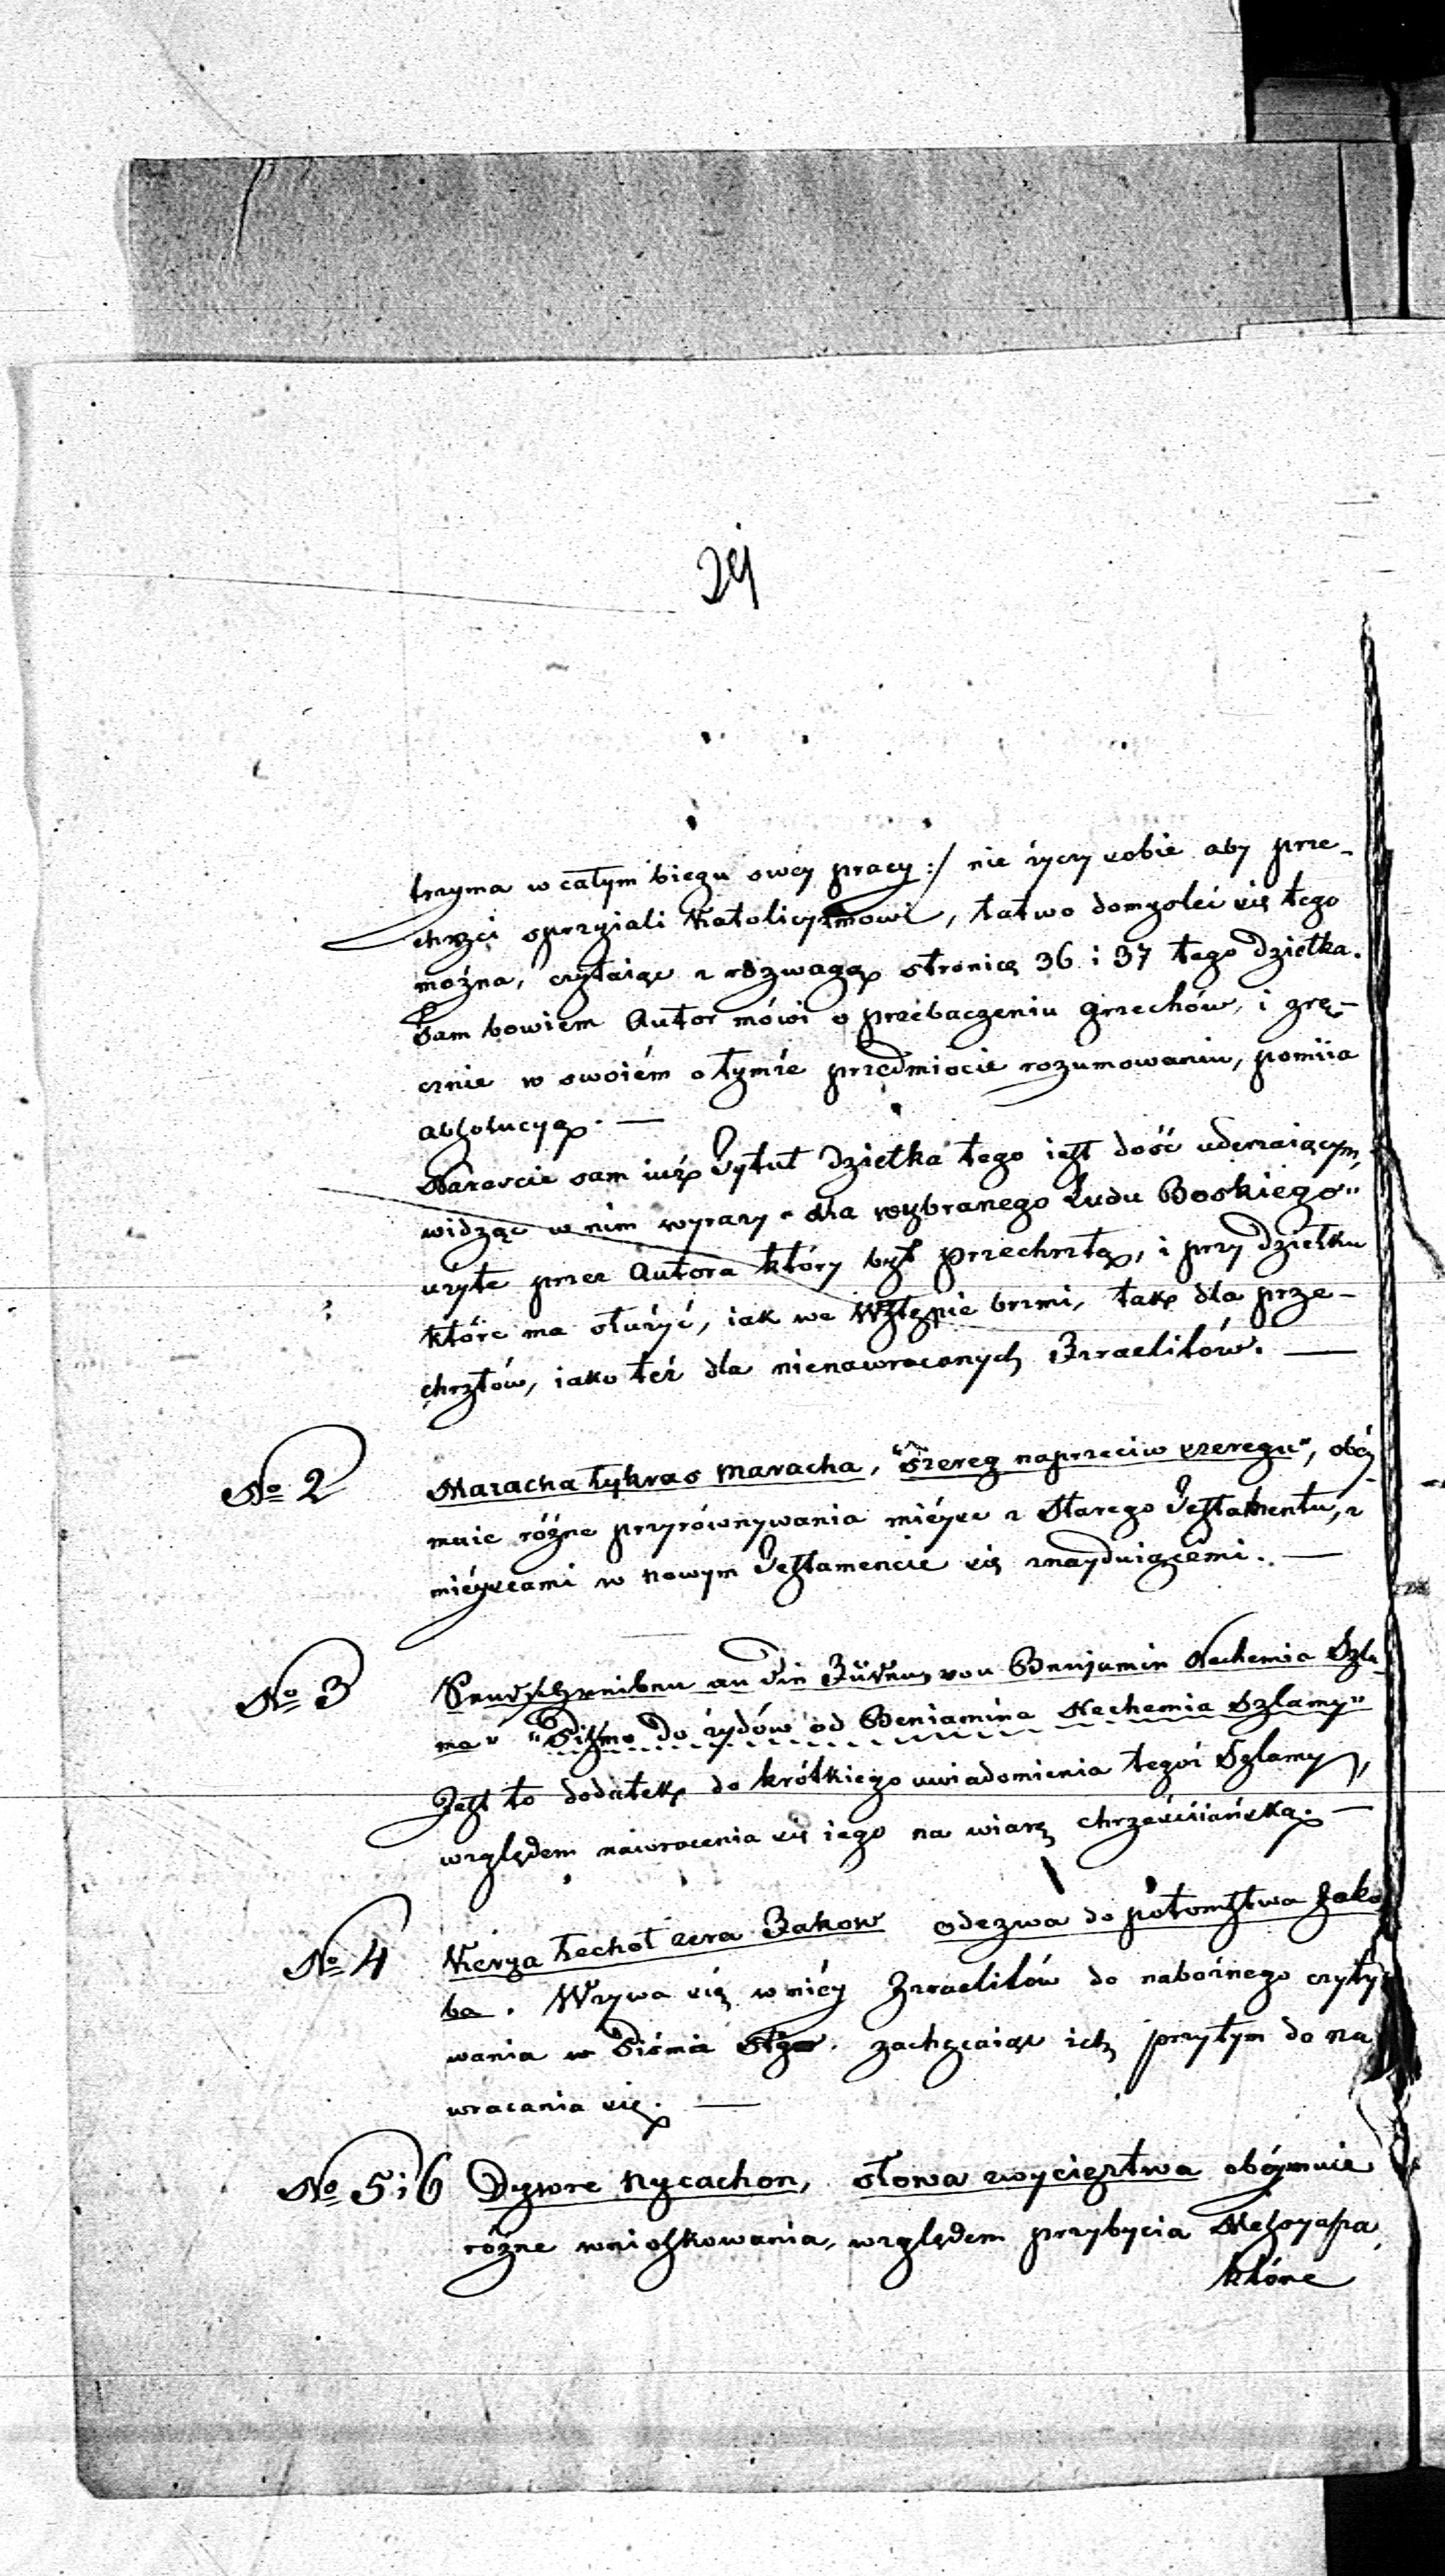 29
trzyma w całym biegu swéy pracy :/ nie życzy sobie aby prze-
chrzci sprzyiali Katolicyzmowi, łatwo domyśleć się tego
można, czytaiąc z rozwagą stronicę 36 i 37 tego dziełka.
Tam bowiem Autor mówi o przebaczeniu grzechów, i zrę-
cznie w swoiém o tymże przedmiocie rozumowaniu, pomiia
absolucyą. —
Nareszcie sam iuż Tytuł Dziełka tego iest dość uderzaiącym,
widząc w nim wyrazy „dla wybranego Ludu Boskiego"
użyte przez Autora który był przechrztą, i przy dziełku
które ma służyć, iak we Wstępie brzmi, tak dla prze-
chrztów, iako też dla nienawroconych Izraelitów. —
No 2 Maracha łykras Maracha, "Szereg naprzeciw szeregu", obéy
muie różne przyrównywania mieysc z Starego Testamentu, z
mieyscami w nowym Testamencie się znayduiącemi. —
No 3 Sendschreiben an die Juden von Benjamin Nechemia Szla
ma" "Pismo do żydów od Beniamina Nechemia Szlamy"
Jest to dodatek do krótkiego uwiadomienia tegoż Szlamy,
względem nawrocenia się iego na wiarę chrześciiańską. —
No 4 Kerya Lechol zera Jakow odezwa do potomstwa Jako
ba. Wzywa się w niéy Izraelitów do nabożnego czyty
wania w Piśmie zachęcaiąc ich przytym do na
wracania się. —
No 5 i 6 Dywre Nycachon, słowa zwycięztwa obéymuie
różne wnioskowania, względem przybycia Messyasza
które